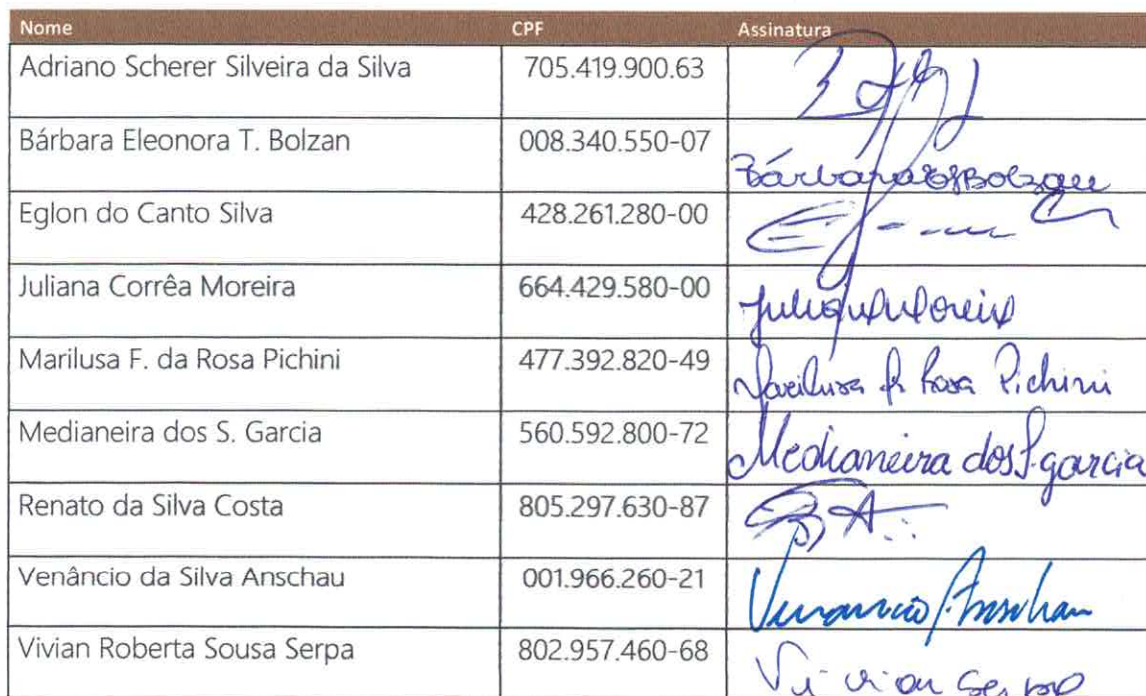 Nome CPF Assinatura
Adriano Scherer Silveira da Silva 705.419.900.63
Bárbara Eleonora T. Bolzan 008.340.550-07
Bárbara Bolzan
Eglon do Canto Silva 428.261.280-00
Juliana Corrêa Moreira 664.429.580-00
Marilusa F. da Rosa Pichini 477.392.820-49
Marilusa Rosa Pichini
Medianeira dos S. Garcia 560.592.800-72
Medianeira dos S. garcia
Renato da Silva Costa 805.297.630-87
Venâncio da Silva Anschau 001.966.260-21
Venancio Anschau
Vivian Roberta Sousa Serpa 802.957.460-68
Vivian Serpa